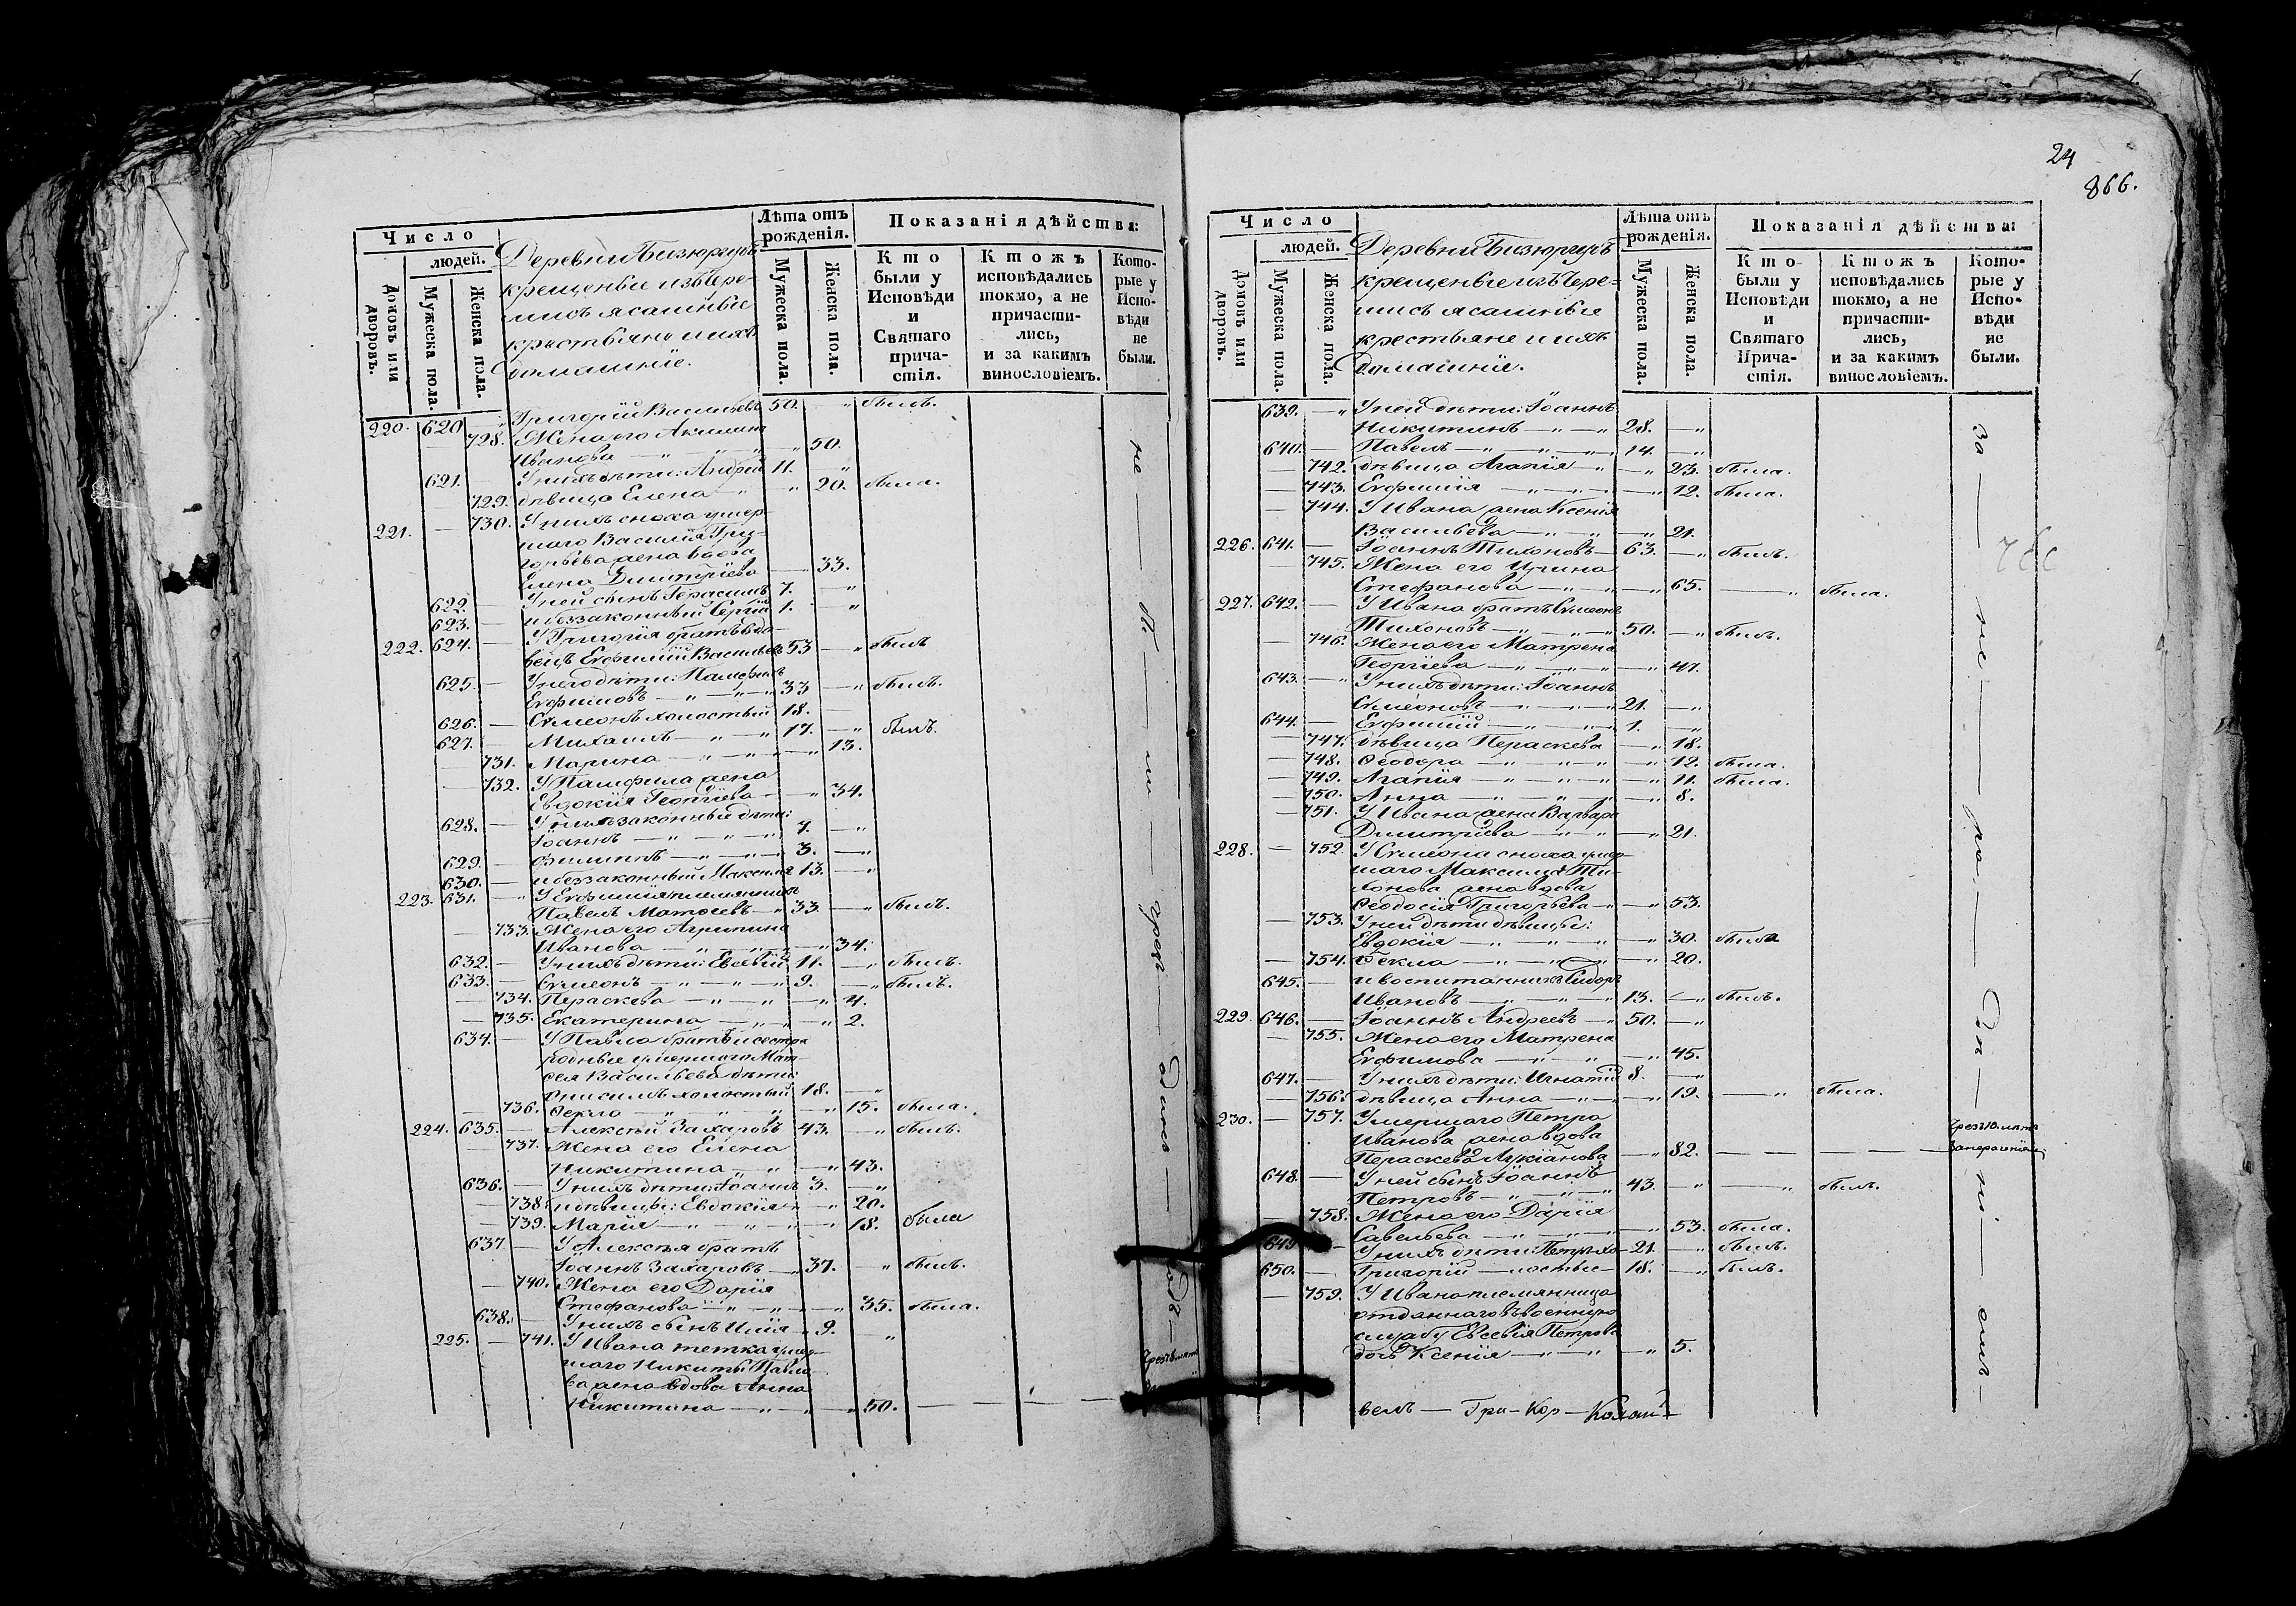 Число
людей.
Домовъ или дворовъ.
Мужеска пола.
Женска пола.
Деревни Бизюргупъ
крещеные изъ Чере-
мисъ ясашные
крестьяне и ихъ
домашніе.
Лѣта отъ рожденія.
Мужеска пола.
Женска пола.
Показанія дѣйства:
Кто были у Исповѣди и Святаго прича- стія.
Ктожъ исповѣдались токмо, а не причасти- лись, и за какимъ винословіемъ.
Кото- рые у Испо- вѣди не были.
220. 620 — Григорій Васильевъ 50. — „ былъ.
— 728. Жена его Акилина
Иванова — „ — „ 50.
621. — У нихъ дѣти: Андрей 11. „
— 729. дѣвица Елена — „ — „ 20. была.
221. — 730. У нихъ сноха умер-
шаго Василія Гри-
горьева жена вдова
Елена Димитріева — 33.
622. — У ней сынъ Герасимъ 7. — „
623. — и беззаконный Сергій 1. — „
222. 624. — У Григорія братъ вдо-
вецъ Евфимій Васильевъ 53 — „ былъ
625. — У него дѣти: Памфилъ
Евфимовъ — „ — „ — „ 33 — „ былъ.
626. — Сѵмеонъ холостый 18. —
627. — Михаилъ — „ — „ 17. — „ былъ.
— 731. Марина — „ — „ — „ 13.
— 732. У Памфила жена
Евдокія Георгіева — „ 34.
628. — У нихъ законные дѣти:
Іоаннъ — „ — „ — „ 7. — „
629. — Филиппъ — „ — „ — „ 3. — „
630. — и беззаконный Максимъ 13. — „
223. 631. — „ У Евфимія племянникъ
Павелъ Матѳеевъ — „ 33. — „ былъ.
— 733. Жена его Агрипина
Иванова — „ — „ — „ 34.
632. — У нихъ дѣти: Евсевій 11. — „ былъ.
633. — Сѵмеонъ — „ — „ — „ 9. — „ былъ.
— 734. Параскева — „ — „ — „ 4.
— 735. Екатерина — „ — „ — „ 2.
634. — У Павла братъ и сестра
родные умершаго Мат-
ѳея Васильева дѣти:
Онисимъ холостый 18. — „
— 736. Ѳекла — „ „ „ — „ 15. была.
224. 635. — Алексѣй Захаровъ 43. — „ былъ.
— 737. Жена его Елена
Никитина — „ — „ — „ 43.
636. — У нихъ дѣти: Іоаннъ 3. — „
— 738. и дѣвицы: Евдокія — „ — „ 20.
— 739. Марія — „ — „ — „ 18. была
637. — У Алексѣя братъ
Іоаннъ Захаровъ — „ 37. — „ былъ.
— 740. Жена его Дарія
Стефанова — „ — „ — „ 35. была.
638. — У нихъ сынъ Илія — „ 9. — „
225. — 741. У Ивана тетка умер-
шаго Никиты Павло-
ва жена вдова Анна
Никитина — „ — „ — „ 50. — — — —
не — бы — ли — чрез — — —
24
866.
Число
людей.
Домовъ или дворовъ.
Мужеска пола.
Женска пола.
Деревни Бизюргупъ
крещеные изъ Чере-
мисъ ясашные
крестьяне и ихъ
домашніе.
Лѣта отъ рожденія.
Мужеска пола.
Женска пола.
Показанія дѣйства:
Кто были у Исповѣди и Святаго Прича- стія.
Ктожъ исповѣдались токмо, а не причасти- лись, и за какимъ винословіемъ.
Кото- рые у Испо- вѣди не были.
639. — „ У ней дѣти: Іоаннъ
Никитинъ — „ — „ 28. — „
640. — Павелъ — „ — „ — „ 14. — „
— 742. дѣвица Агапія — „ — „ 23. была.
— 743. Евфимія — „ — „ — „ 12. была.
— 744. У Ивана жена Ксенія
Васильева — „ — „ — „ 21.
226. 641. — Іоаннъ Тихоновъ — 63. — „ былъ.
— 745. Жена его Ирина
Стефанова — „ — „ — „ 65. — „ была.
227. 642. — У Ивана братъ Сѵмеонъ
Тихоновъ — „ — „ — „ 50. — „ былъ.
— 746. Жена его Матрена
Георгіева — „ — „ — „ 47.
643. — „ У нихъ дѣти: Іоаннъ
Сѵмеоновъ — „ — „ — „ 21. — „
644. — Евфимій — „ — „ — „ 1. — „
— 747. дѣвица Параскева — „ 18.
— 748. Ѳеодора — „ — „ — „ 12. была.
— 749. Агапія — „ — „ — „ 11. была.
— 750. Анна — „ — „ — „ 8.
— 751. У Ивана жена Варвара
Димитріева — „ — „ — „ 21.
228. — 752. У Сѵмеона сноха умер-
шаго Максима Ти-
хонова жена вдова
Ѳеодосія Григорьева — „ — „ 53.
— 753. У ней дѣти дѣвицы:
Евдокія — „ — „ — „ 30. была
— 754. Ѳекла — „ — „ — „ 20.
645. — и воспитанникъ Сидоръ
Ивановъ — „ — „ — „ 13. — „ былъ.
229. 646. — Іоаннъ Андреевъ — „ 50. — „
— 755. Жена его Матрена
Евфимова — „ — „ — „ 45.
647. — У нихъ дѣти: Игнатій 8. — „
— 756. дѣвица Анна — „ — „ — „ 19. — „ была.
230. — 757. Умершаго Петра
Иванова жена вдова
Параскева Лукіанова — „ 82. — — — —
648. — У ней сынъ Іоаннъ
Петровъ — „ — „ — „ 43. — „ — „ былъ.
— 758. Жена его Дарія
Савельева — „ — „ — „ 53. была.
649. — У нихъ дѣти: Петръ хо- 21. — „ былъ.
650. — Григорій — лостые — 18. — „ былъ.
— 759. У Ивана племянница
отданнаго въ военную
службу Евсевія Петрова
дочь Ксенія — „ — „ — „ 5.
велъ — Гри — Кор —
за — не — ра —